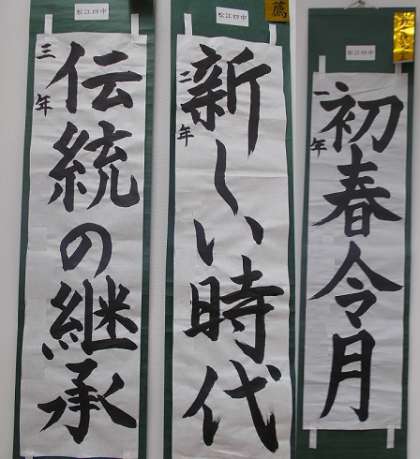 松江四中
一年
初春令月
薦
松江四中
二年
新しい時代
松江四中
三年
伝統の継承